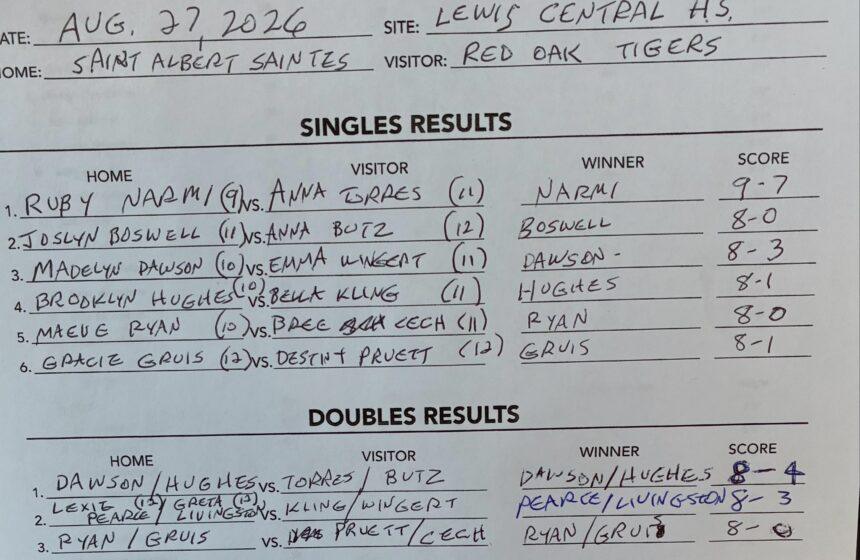 ATE: AUG. 27, 2026 SITE: LEWIS CENTRAL H.S.
HOME: SAINT ALBERT SAINTES VISITOR: RED OAK TIGERS
SINGLES RESULTS
HOME VISITOR WINNER SCORE
1. RUBY NARMI (9) VS. ANNA TORRES (11) NARMI 9-7
2. JOSLYN BOSWELL (11) VS. ANNA BUTZ (12) BOSWELL 8-0
3. MADELYN DAWSON (10) VS. EMMA WINGERT (11) DAWSON - 8-3
4. BROOKLYN HUGHES (10) VS. BELLA KLING (11) HUGHES 8-1
5. MAEVE RYAN (10) VS. BREE CECH (11) RYAN 8-0
6. GRACIE GRUIS (12) VS. DESTINY PRUETT (12) GRUIS 8-1
DOUBLES RESULTS
HOME VISITOR WINNER SCORE
1. DAWSON/HUGHES VS. TORRES/BUTZ DAWSON/HUGHES 8-4
LEXIE (12) GRETA (12)
2. PEARCE/LIVINGSTON VS. KLING/WINGERT PEARCE/LIVINGSTON 8-3
3. RYAN/GRUIS VS. PRUETT/CECH RYAN/GRUIS 8-0